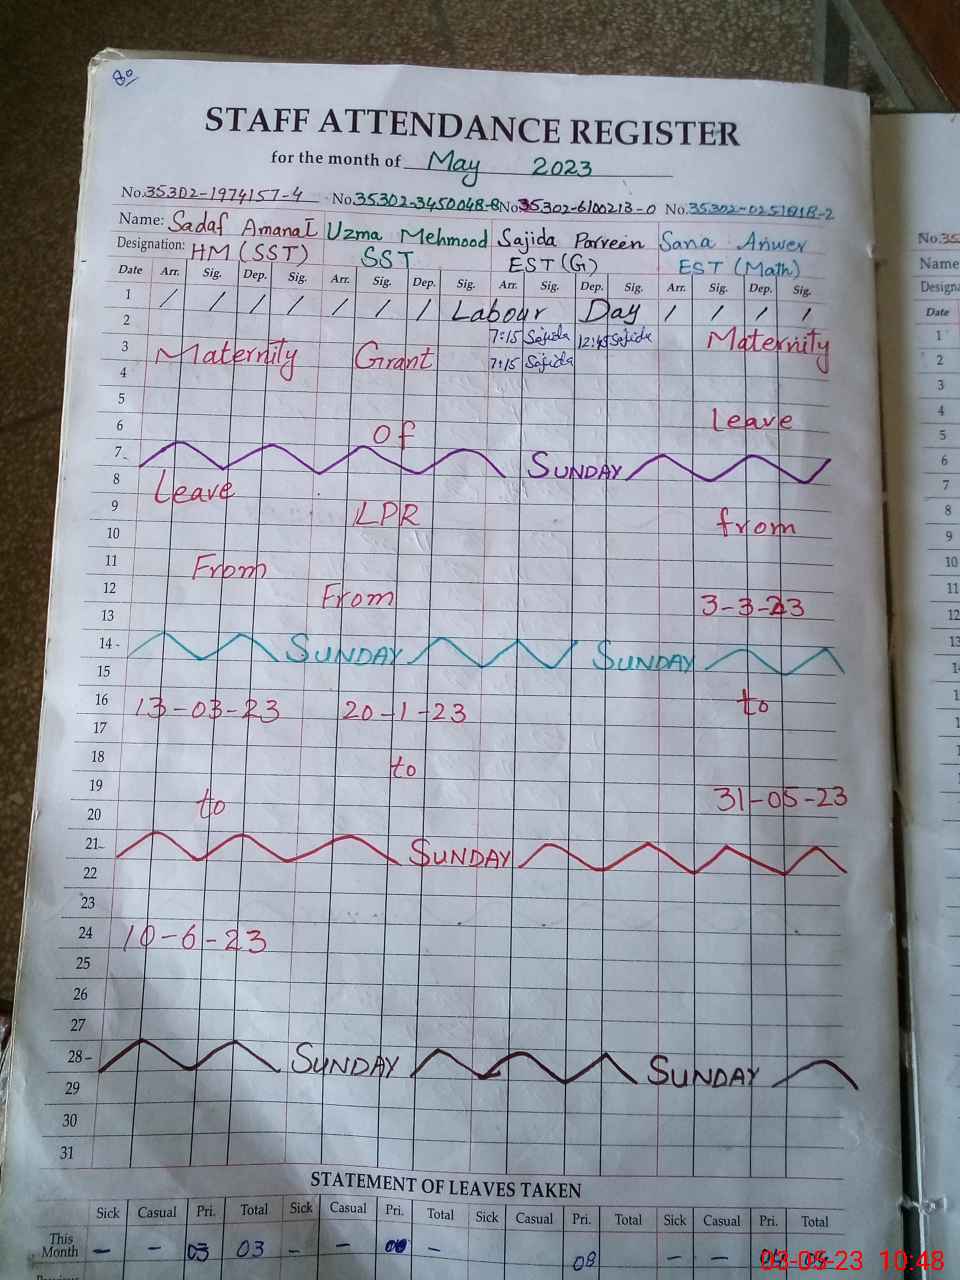 80
STAFF ATTENDANCE REGISTER
for the month of May 2023
No. 35302-1974157-4 No. 35302-3450048-8 No 35302-6100213-0 No. 35302-0251818-2
Name: Sadaf Amanat Uzma Mehmood Sajida Parveen Sana Anwer
Designation: HM (SST) SST EST (G) EST (Math)
Date Arr. Sig. Dep. Sig. Arr. Sig. Dep. Sig. Arr. Sig. Dep. Sig. Arr. Sig. Dep. Sig.
1 / / / / / / / Labour Day / / / /
2 7:15 Sajida 12:45 Sajida
3 Maternity Grant 7:15 Sajida Maternity
4
5
6 Of Leave
7 SUNDAY
8 Leave
9 LPR from
10
11 From
12 From 3-3-23
13
14 SUNDAY SUNDAY
15
16 13-03-23 20-1-23 to
17
18 to
19 31-05-23
20 to
21 SUNDAY
22
23
24 10-6-23
25
26
27
28 SUNDAY SUNDAY
29
30
31
STATEMENT OF LEAVES TAKEN
Sick Casual Pri. Total Sick Casual Pri. Total Sick Casual Pri. Total Sick Casual Pri. Total
This Month - - 03 03 - - - 08 - -
No. 35
Name
Designa
Date
1
2
3
4
5
6
7
8
9
10
11
12
13
03-05-23 10:48